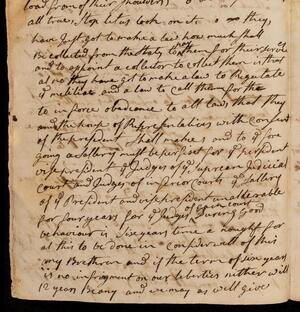 load from of their shoulders)
all true, Stop let us look on it is they
have Just got to make a law how much shall
Be collected from the Staty them for their servis
and to appoint a collector to collect them is that
al no they have Got to make a law to Regulate
ye militia and a law to call them forth
to in force obediance to all laws that they
and the house of Representatives with consent
of the president Shall make; and to ye fore
going a Sallery must be perfixt for ye president
vice president ye Judges of ye supream Judicial
court and Judges of inferior courts ye Sallery
of ye President and vice president unalterable
for four years for ye Judges of During Good
behaviour is six years time a naught for
al this to be done in consider all of this
my Brethren and if the term of six years
is no infringment on our liberties neither will
12 years Be any and we may as well give